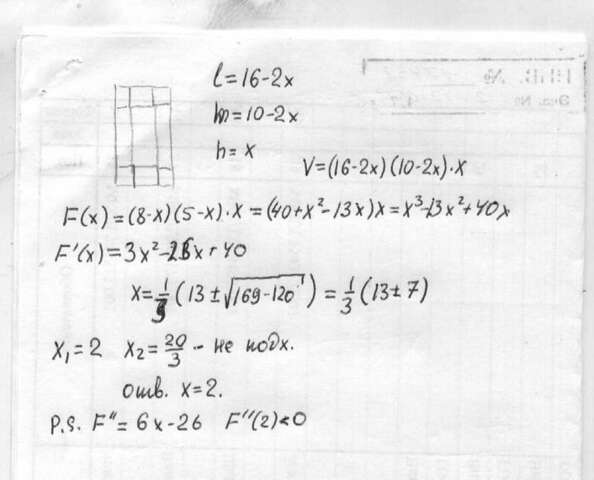 l=16-2x
m=10-2x
h=x
V=(16-2x)(10-2x)·x
F(x)=(8-x)(5-x)·x=(40+x²-13x)x=x³-13x²+40x
F'(x)=3x²-26x+40
x=1/3(13±√(169-120))=1/3(13±7)
x₁=2 x₂=20/3 - не подх.
отв. x=2.
P.S. F''=6x-26 F''(2)<0